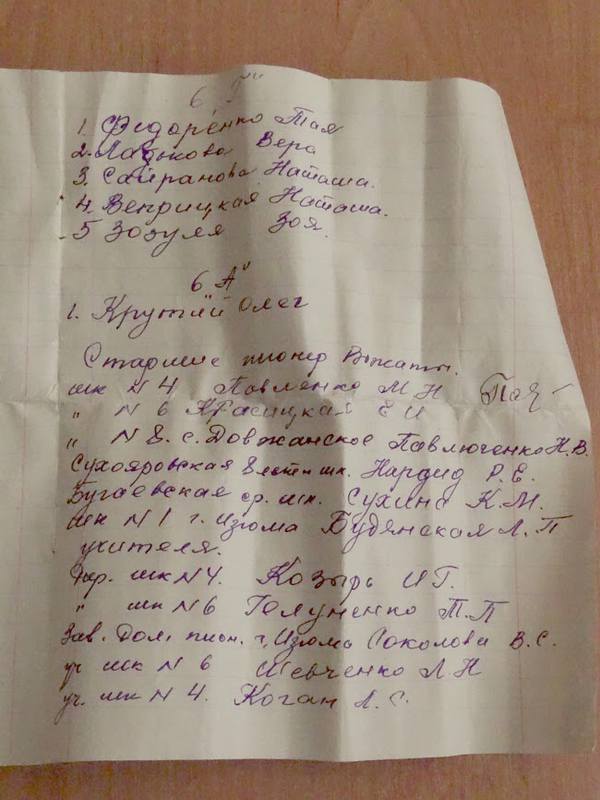 6 „Г"
1. Федоренко Тая
2. Ладыкова Вера
3. Сайранова Наташа.
4. Венрицкая Наташа.
5 Зозуля Зоя.
6 „А"
1. Крутий Олег
Старшие пионер Вожаты.
шк N 4 Павленко М Н
„ N 6 Красицкая Е И
„ N 8. с. Довжанское Павлюченко Н. В.
Сухояровская 8 летн шк. Нардид Р. Е.
Бугаевская ср. шк. Сухина К. М.
шк N 1 г. Изюма Будянская Л. П
учителя.
Дир. шк N 4. Козырь И Г.
„ шк N 6 Голуненко Т. П
Зав. Дом. пион. г. Изюма Соколова В. С.
уч шк N 6 Шевченко Л. Н
уч. шк N 4. Коган Л. С.